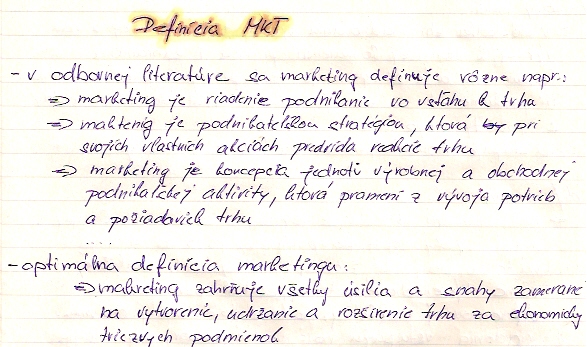 Definícia MKT
- v odbornej literatúre sa marketing definuje rôzne napr.:
⇒ marketing je riadenie podnikanie vo vzťahu k trhu
⇒ maktenig je podnikateľskou stratégiou, ktorá by pri
svojich vlastních akciách predvída reakcie trhu
⇒ marketing je koncepcia jednoty výrobnej a obchodnej
podnikateľskej aktivity, ktorá pramení z vývoja potrieb
a požiadaviek trhu
....
- optimálna definícia marketingu:
⇒ makreting zahrňuje všetky úsilia a snahy zamerané
na vytvorenie, udržanie a rozšírenie trhu za ekonomicky
podmienok